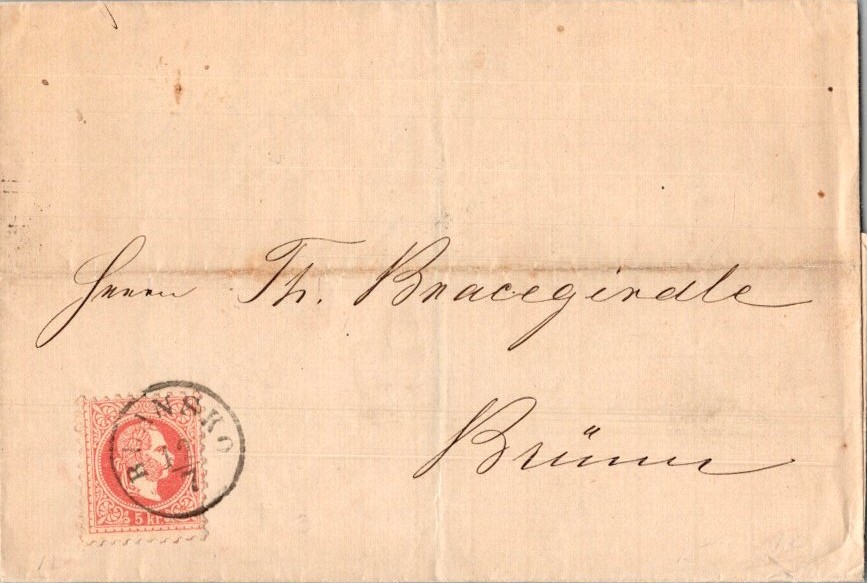 Herrn Th. Bracegirdle
Brünn
BLANSKO
5 kr.